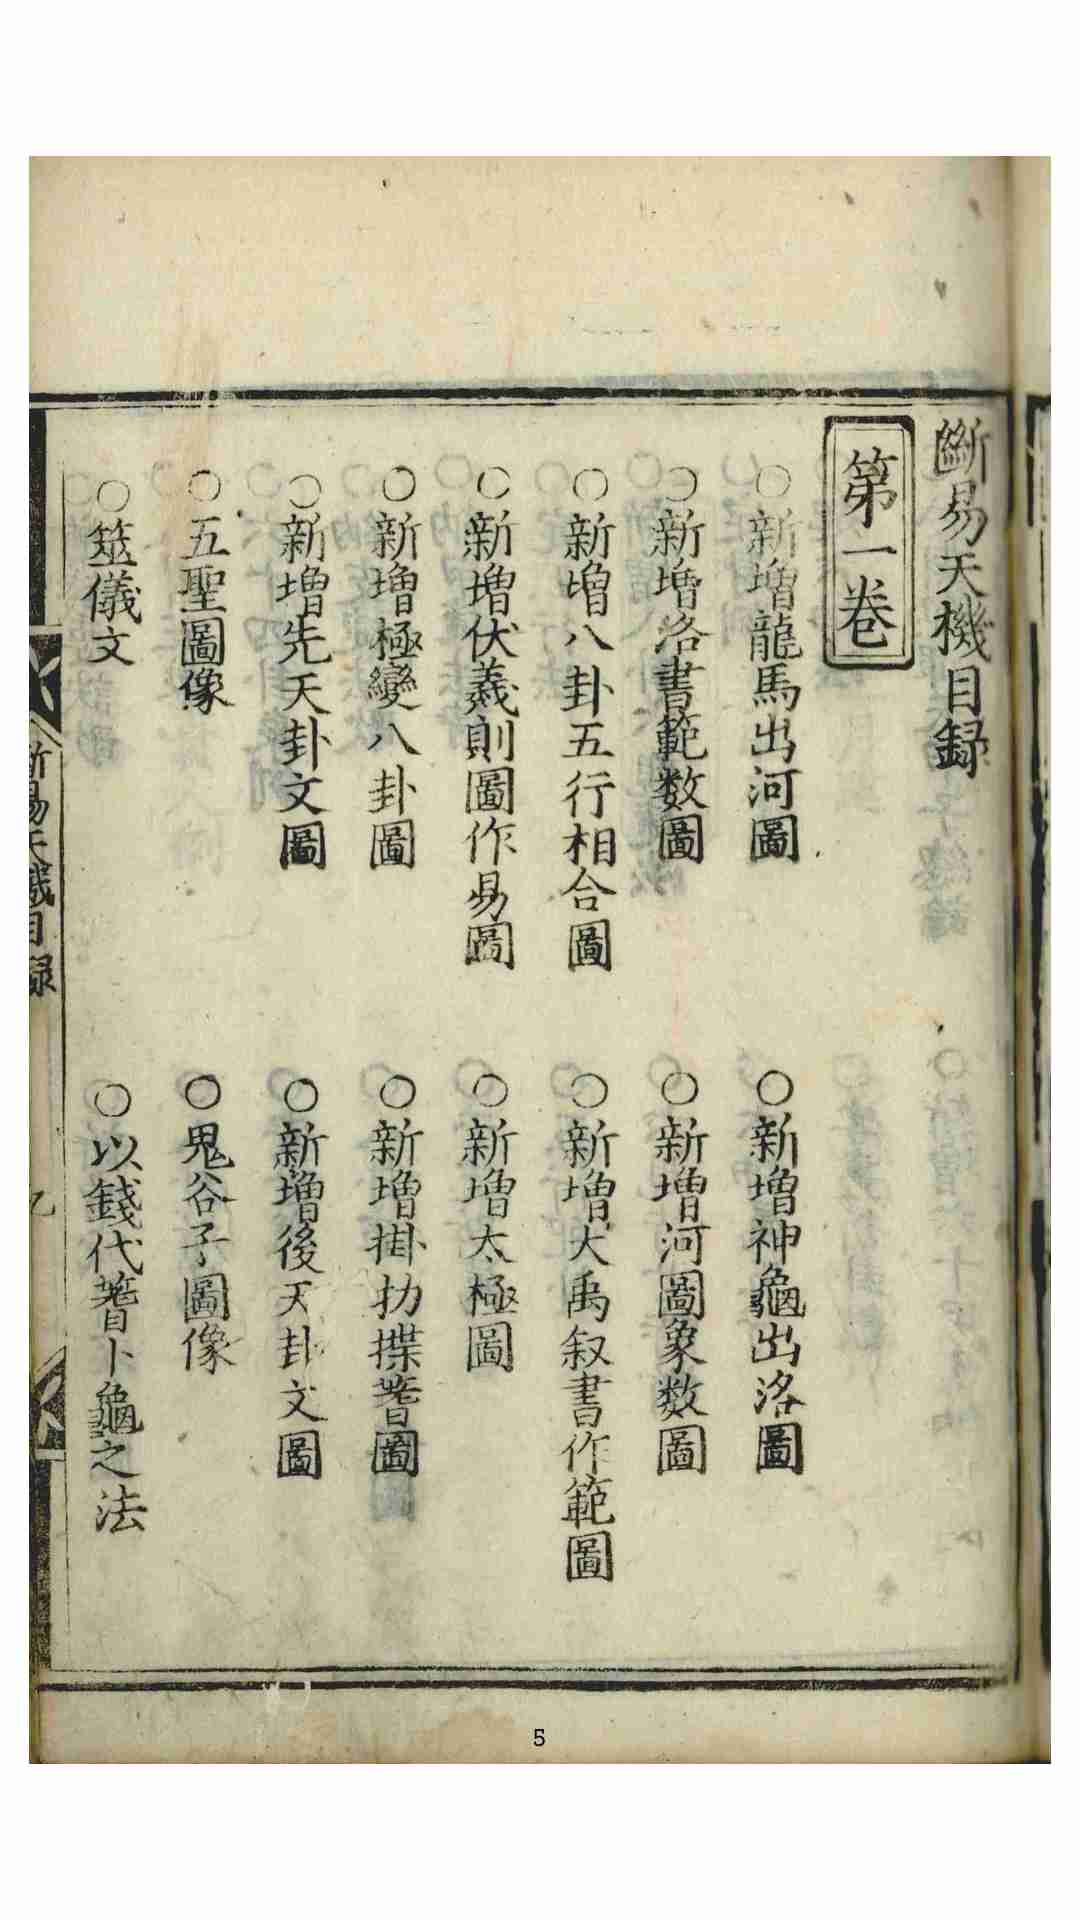 斷易天機目録
第一卷
○新增龍馬出河圖
○新增神龜出洛圖
○新增洛書範数圖
○新增河圖象数圖
○新增八卦五行相合圖
○新增大禹叙書作範圖
○新增伏羲則圖作易圖
○新增太極圖
○新增極變八卦圖
○新增掛扐揲蓍圖
○新增先天卦文圖
○新增後天卦文圖
○五聖圖像
○鬼谷子圖像
○筮儀文
○以錢代蓍卜龜之法
斷易天機目録
5